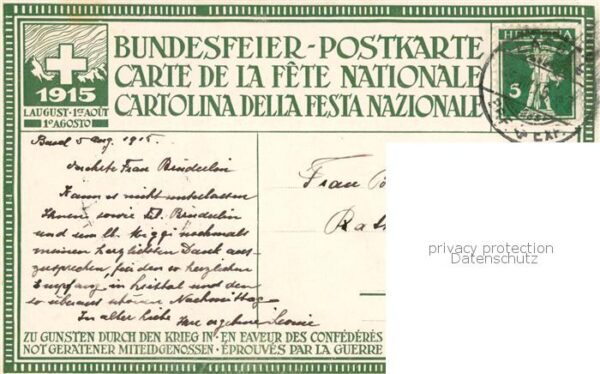 BUNDESFEIER-POSTKARTE
CARTE DE LA FÊTE NATIONALE
CARTOLINA DELLA FESTA NAZIONALE
1915
1. AUGUST · 1ER AOÛT
1O AGOSTO
HELVETIA
5
Basel 5 Aug. 1915.
Frau Brüderlin
Kann es nicht unterlassen
Ihnen sowie Brüderlin
und nochmals
meinen herzlichsten Dank aus-
zusprechen, für den so herzlichen
Empfang in Liestal und den
so überaus schönen Nachmittag
In alter Liebe
Ihre ergebene Leonie
Frau B
privacy protection
Datenschutz
ZU GUNSTEN DURCH DEN KRIEG IN · EN FAVEUR DES CONFÉDÉRÉS
NOT GERATENER MITEIDGENOSSEN · ÉPROUVÉS PAR LA GUERRE